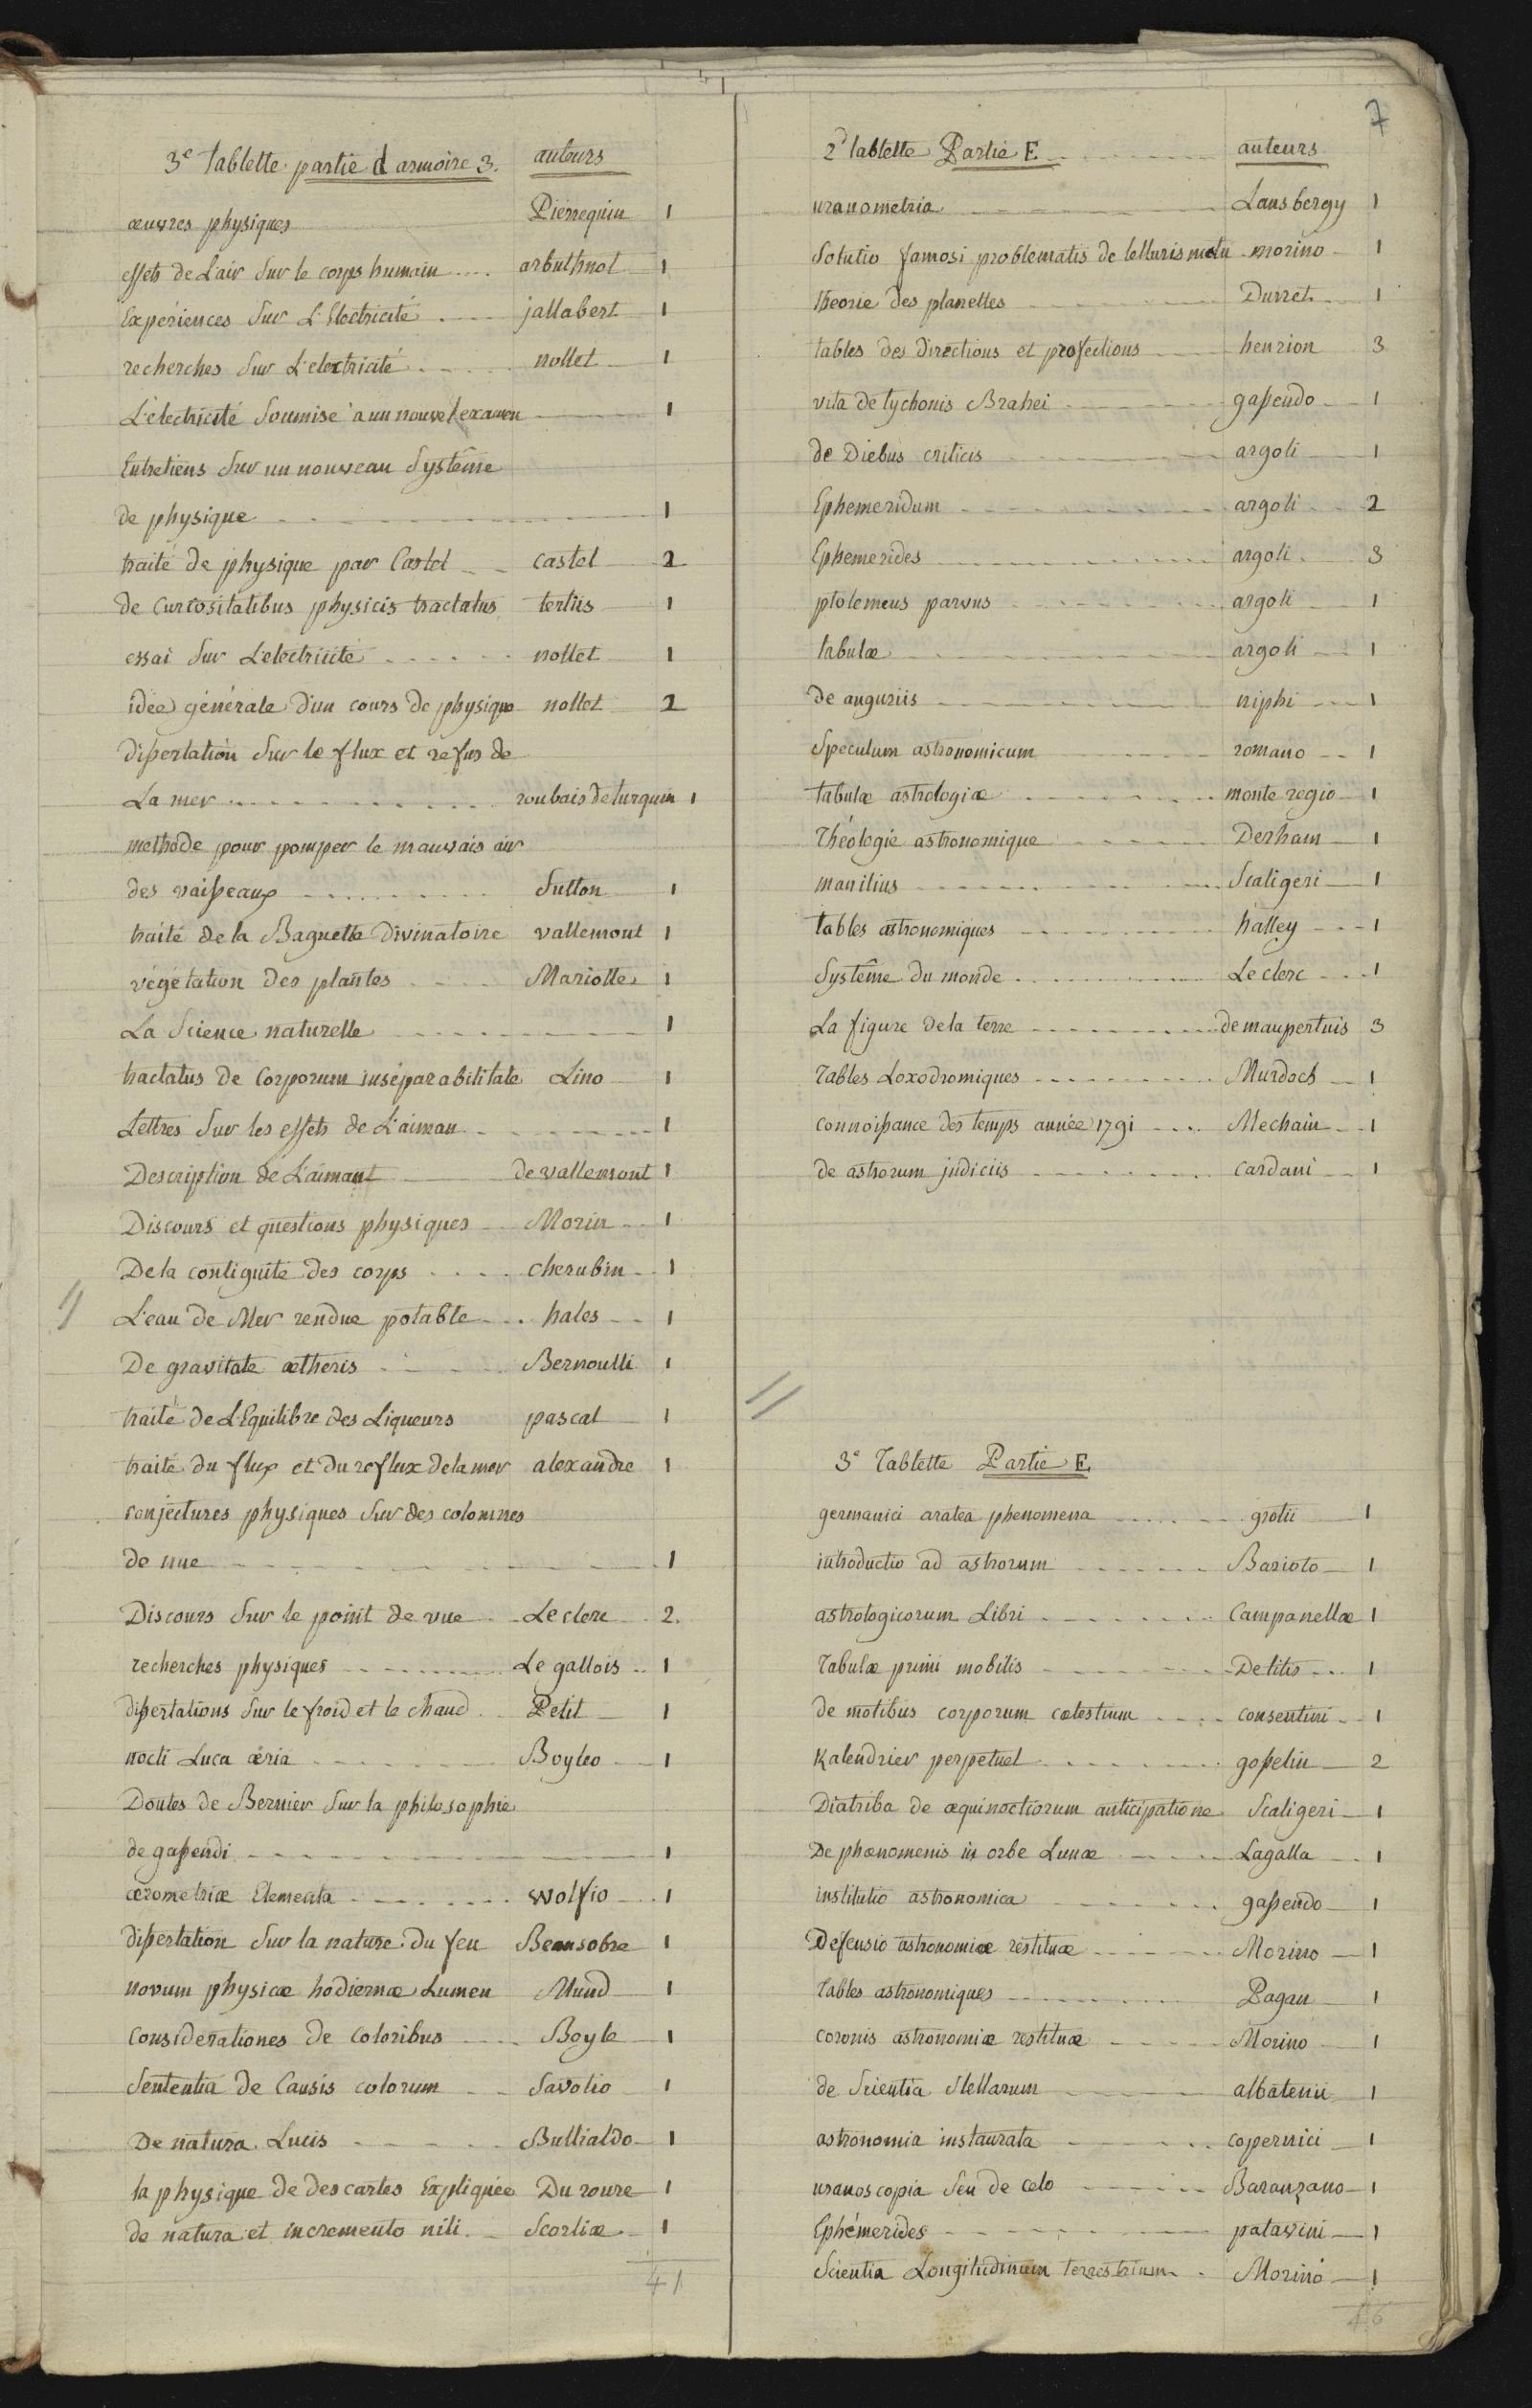 7
3e tablette partie d armoire 3. auteurs
œuvres physiques Pierrequin 1
effets de L'air Sur le corps humain .... arbuthnot 1
Expériences Sur L'Electricité .... jallabert 1
recherches Sur L'electricité ..... nollet 1
L'électricité Soumise a un nouvel examen 1
Entretiens Sur un nouveau Systême
de physique 1
traité de physique par Castel castel 2
de Curiositatibus physicis tractatus tertiis 1
essai Sur L'electricité nollet 1
idée générale d'un cours de physique nollet 2
dißertation Sur le flux et refus de
La mer roubais de turquin 1
methode pour pomper le mauvais air
des vaißeaux Sutton 1
traité de la Baguette Divinatoire vallemont 1
végétation des plantes Mariotte 1
La Science naturelle 1
tractatus de Corporum inséparabilitate Lino 1
Lettres Sur les effets de L'aiman 1
Description de L'aimant de vallemont 1
Discours et questions physiques Morin 1
De la contiguité des corps cherubin 1
L'eau de Mer rendue potable hales 1
De gravitate ætheris Bernoulli 1
traité de L'Equilibre des Liqueurs pascal 1
traité du flux et du reflux de la mer alexandre 1
conjectures physiques Sur des colonnes
de nue 1
Discours Sur le point de vue Le clerc 2.
recherches physiques Le gallois 1
dißertations Sur le froid et le chaud Petit 1
nocti Luca æria Boyleo 1
Doutes de Bernier Sur la philosophie
de gaßendi 1
ærometriæ Elementa wolfio 1
dißertation Sur la nature du feu Beausobre 1
novum physicæ hodiernæ Lumen Mund 1
Considerationes de Coloribus Boyle 1
Sententia de Causis colorum Savolio 1
De natura Lucis Bullialdo 1
la physique de descartes Expliquée Du roure 1
de natura et incremento nili Scortiæ 1
41
2d tablette Partie E auteurs
uranometria Lansbergy 1
Solutio famosi problematis de telluris motu morino 1
theorie des planettes Durret 1
tables des Directions et profections henrion 3
vita de tychonis Brahei gaßendo 1
de Diebus criticis argoli 1
Ephemeridum argoli 2
Ephemerides argoli 3
ptolemeus parvus argoli 1
tabulæ argoli 1
de auguriis niphi 1
Speculum astronomicum romano 1
tabulæ astrologiæ monte regio 1
Théologie astronomique Derham 1
manilius Scaligeri 1
tables astronomiques halley 1
Systême du monde Le clerc 1
La figure de la terre de maupertuis 3
Tables Loxodromiques Murdoch 1
connoißance des temps année 1791 Mechain 1
de astrorum judiciis cardani 1
3e Tablette Partie E
germanici aratea phenomena grotii 1
introductio ad astrorum Barioto 1
astrologicorum Libri Campanellæ 1
Tabulæ primi mobilis De titis 1
de motibus corporum cœlestium consentini 1
Kalendrier perpetuel goßelin 2
Diatriba de æquinoctiorum anticipatione Scaligeri 1
De phœnomenis in orbe Lunæ Lagalla 1
institutio astronomica gaßendo 1
Defensio astronomiæ restituæ Morino 1
Tables astronomiques Pagan 1
coronis astronomiæ restituæ Morino 1
de Scientia Stellarum albatenii 1
astronomia instaurata copernici 1
uranoscopia Seu de celo Baranzano 1
Ephémerides patavini 1
Scientia Longitudinum terrestrium Morino 1
46